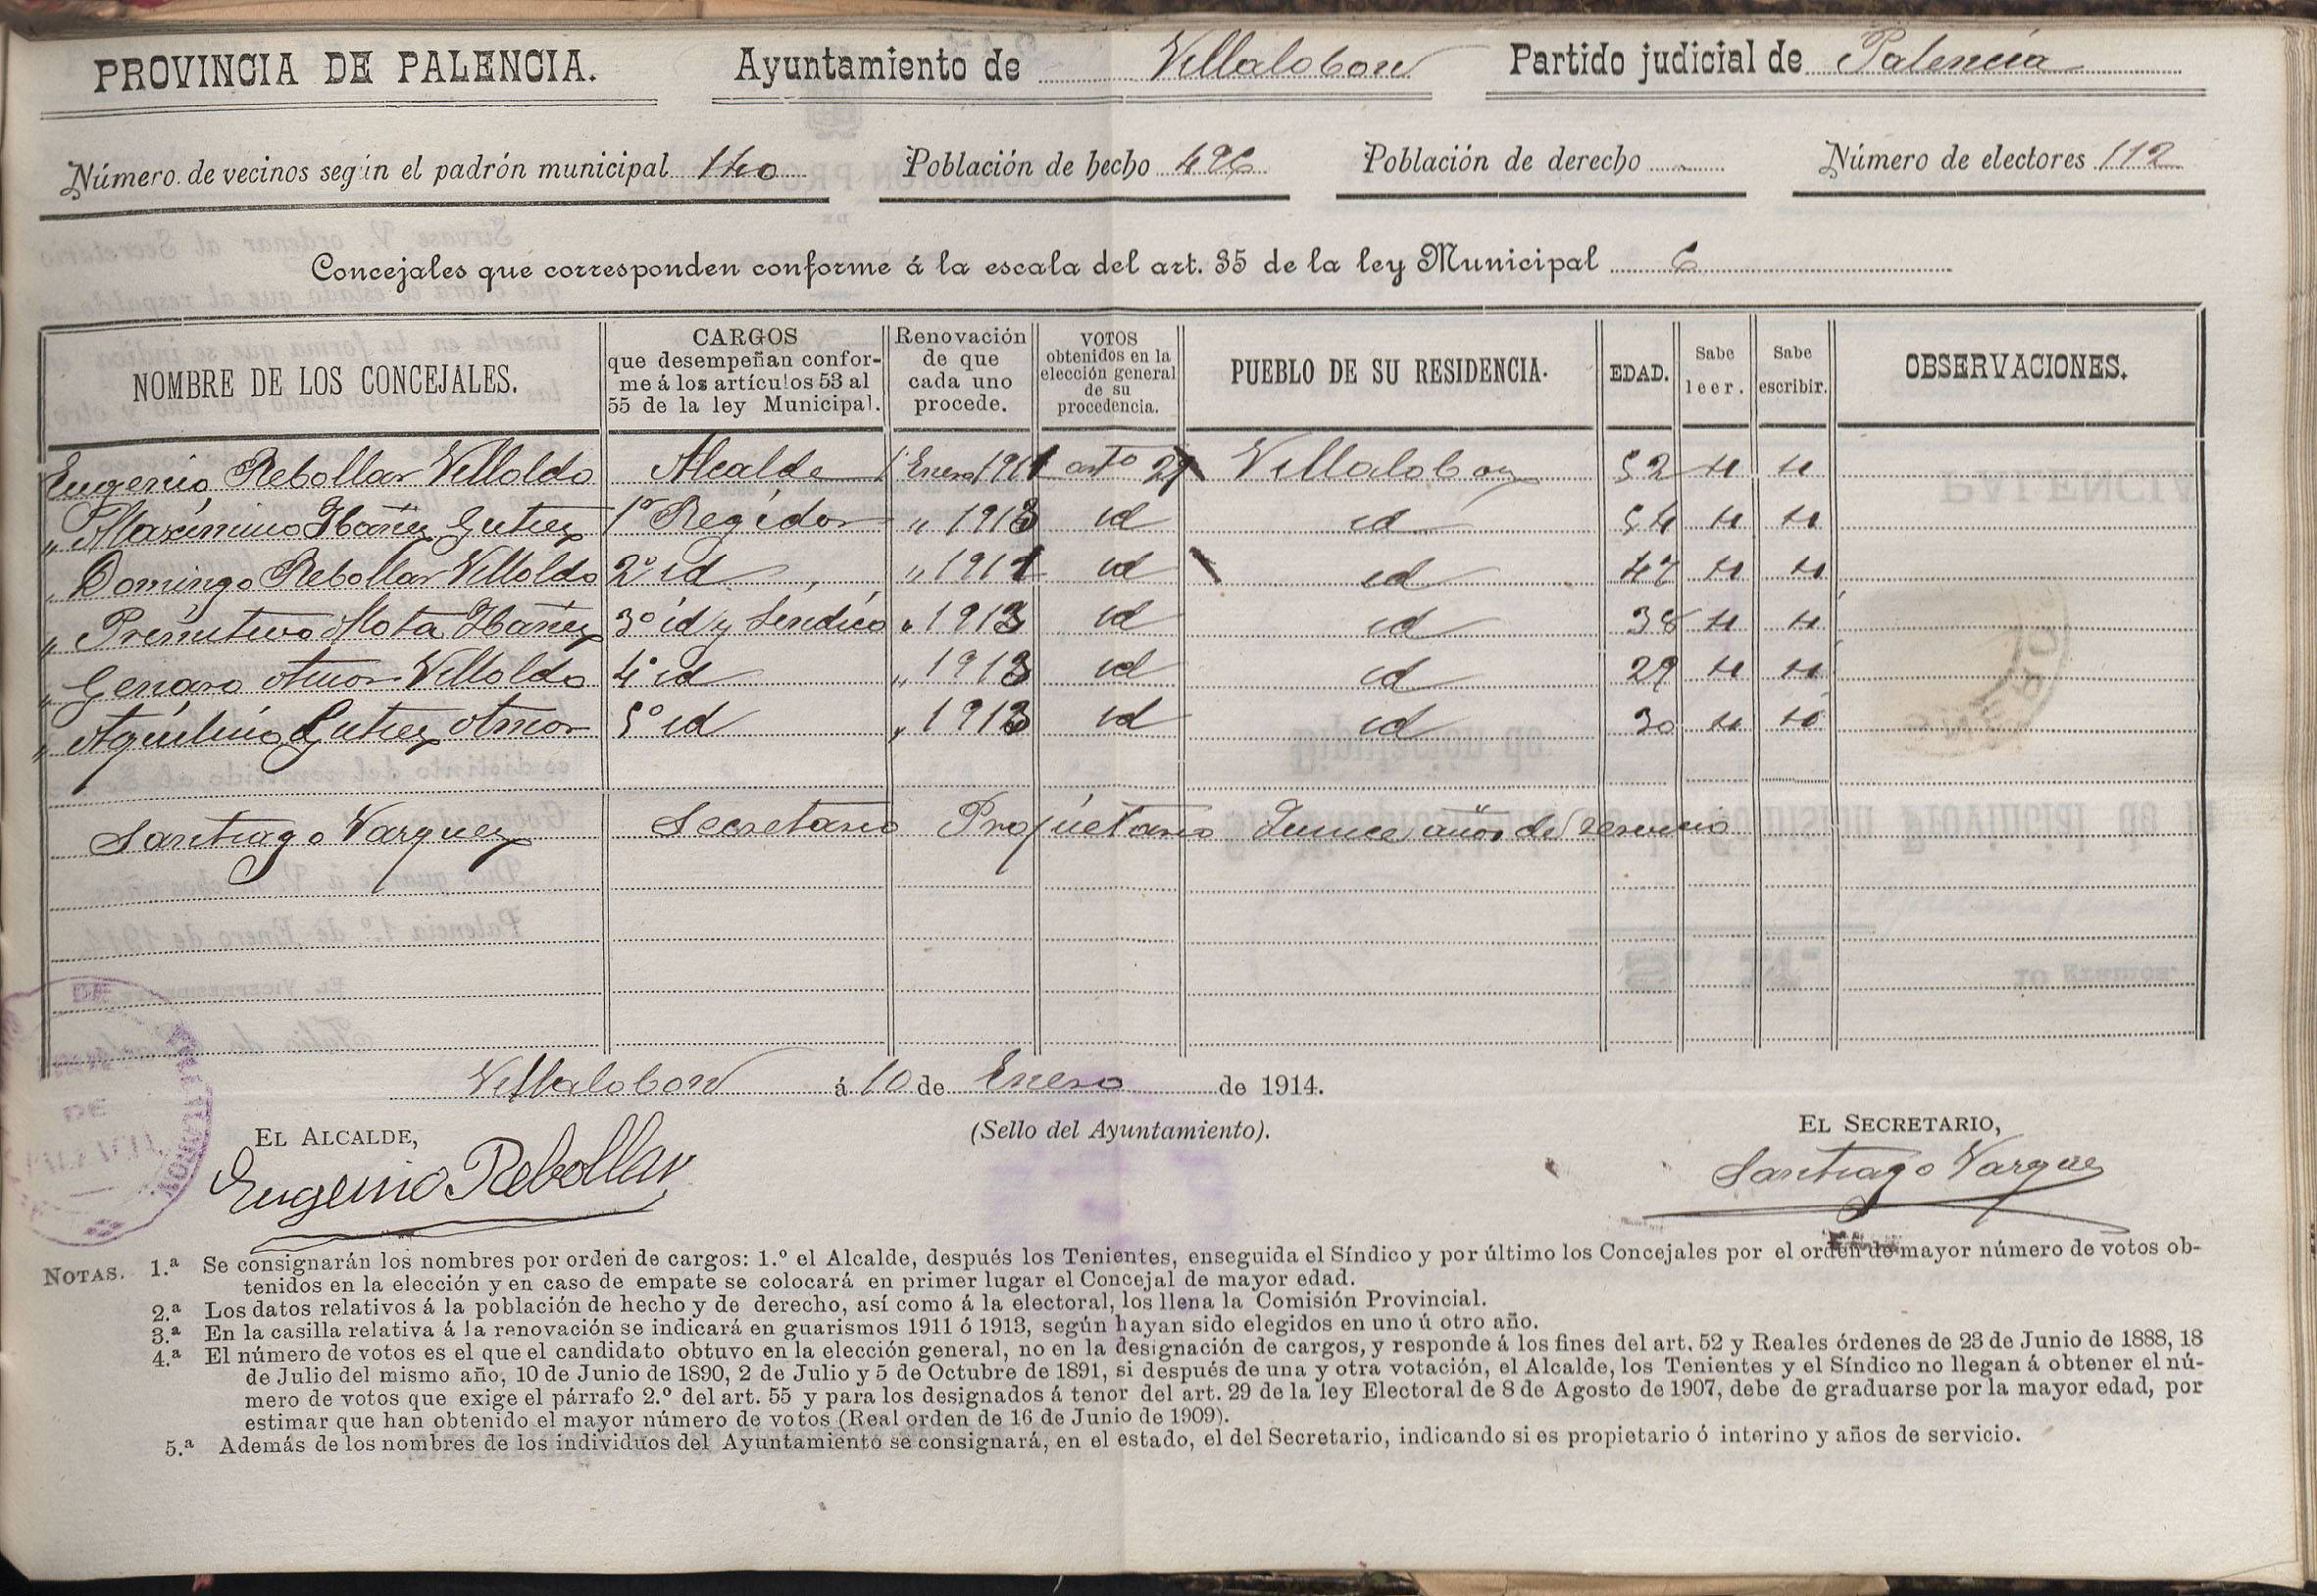 PROVINCIA DE PALENCIA. Ayuntamiento de Villalobon Partido judicial de Palencia
Número de vecinos según el padrón municipal 140 Población de hecho 496 Población de derecho Número de electores 112
Concejales que corresponden conforme á la escala del art. 35 de la ley Municipal 6
NOMBRE DE LOS CONCEJALES. CARGOS que desempeñan confor-me á los artículos 53 al 55 de la ley Municipal. Renovación de que cada uno procede. VOTOS obtenidos en la elección general de su procedencia. PUEBLO DE SU RESIDENCIA. EDAD. Sabe leer. Sabe escribir. OBSERVACIONES.
Eugenio Rebollar Villoldo Alcalde 1º Enero 1911 arto 29 Villalobon 52
" Maximino Ibañez Gutiez 1er Regidor " 1913 id id 54
" Domingo Rebollar Villoldo 2º id " 1911 id id 47
" Primitivo Mota Ibañez 3º id y Sindico " 1913 id id 38
" Genaro Amor Villoldo 4º id " 1913 id id 29
" Aquilino Gutiez Amor 5º id " 1913 id id 30
Santiago Varquez Secretario Propietario Quince años de servicio
Villalobon á 10 de Enero de 1914.
EL ALCALDE, (Sello del Ayuntamiento). EL SECRETARIO,
Eugenio Rebollar Santiago Varquez
NOTAS. 1.ª Se consignarán los nombres por orden de cargos: 1.º el Alcalde, después los Tenientes, enseguida el Síndico y por último los Concejales por el orden de mayor número de votos ob-
tenidos en la elección y en caso de empate se colocará en primer lugar el Concejal de mayor edad.
2.ª Los datos relativos á la población de hecho y de derecho, así como á la electoral, los llena la Comisión Provincial.
3.ª En la casilla relativa á la renovación se indicará en guarismos 1911 ó 1913, según hayan sido elegidos en uno ú otro año.
4.ª El número de votos es el que el candidato obtuvo en la elección general, no en la designación de cargos, y responde á los fines del art. 52 y Reales órdenes de 23 de Junio de 1888, 18
de Julio del mismo año, 10 de Junio de 1890, 2 de Julio y 5 de Octubre de 1891, si después de una y otra votación, el Alcalde, los Tenientes y el Síndico no llegan á obtener el nú-
mero de votos que exige el párrafo 2.º del art. 55 y para los designados á tenor del art. 29 de la ley Electoral de 8 de Agosto de 1907, debe de graduarse por la mayor edad, por
estimar que han obtenido el mayor número de votos (Real orden de 16 de Junio de 1909).
5.ª Además de los nombres de los individuos del Ayuntamiento se consignará, en el estado, el del Secretario, indicando si es propietario ó interino y años de servicio.